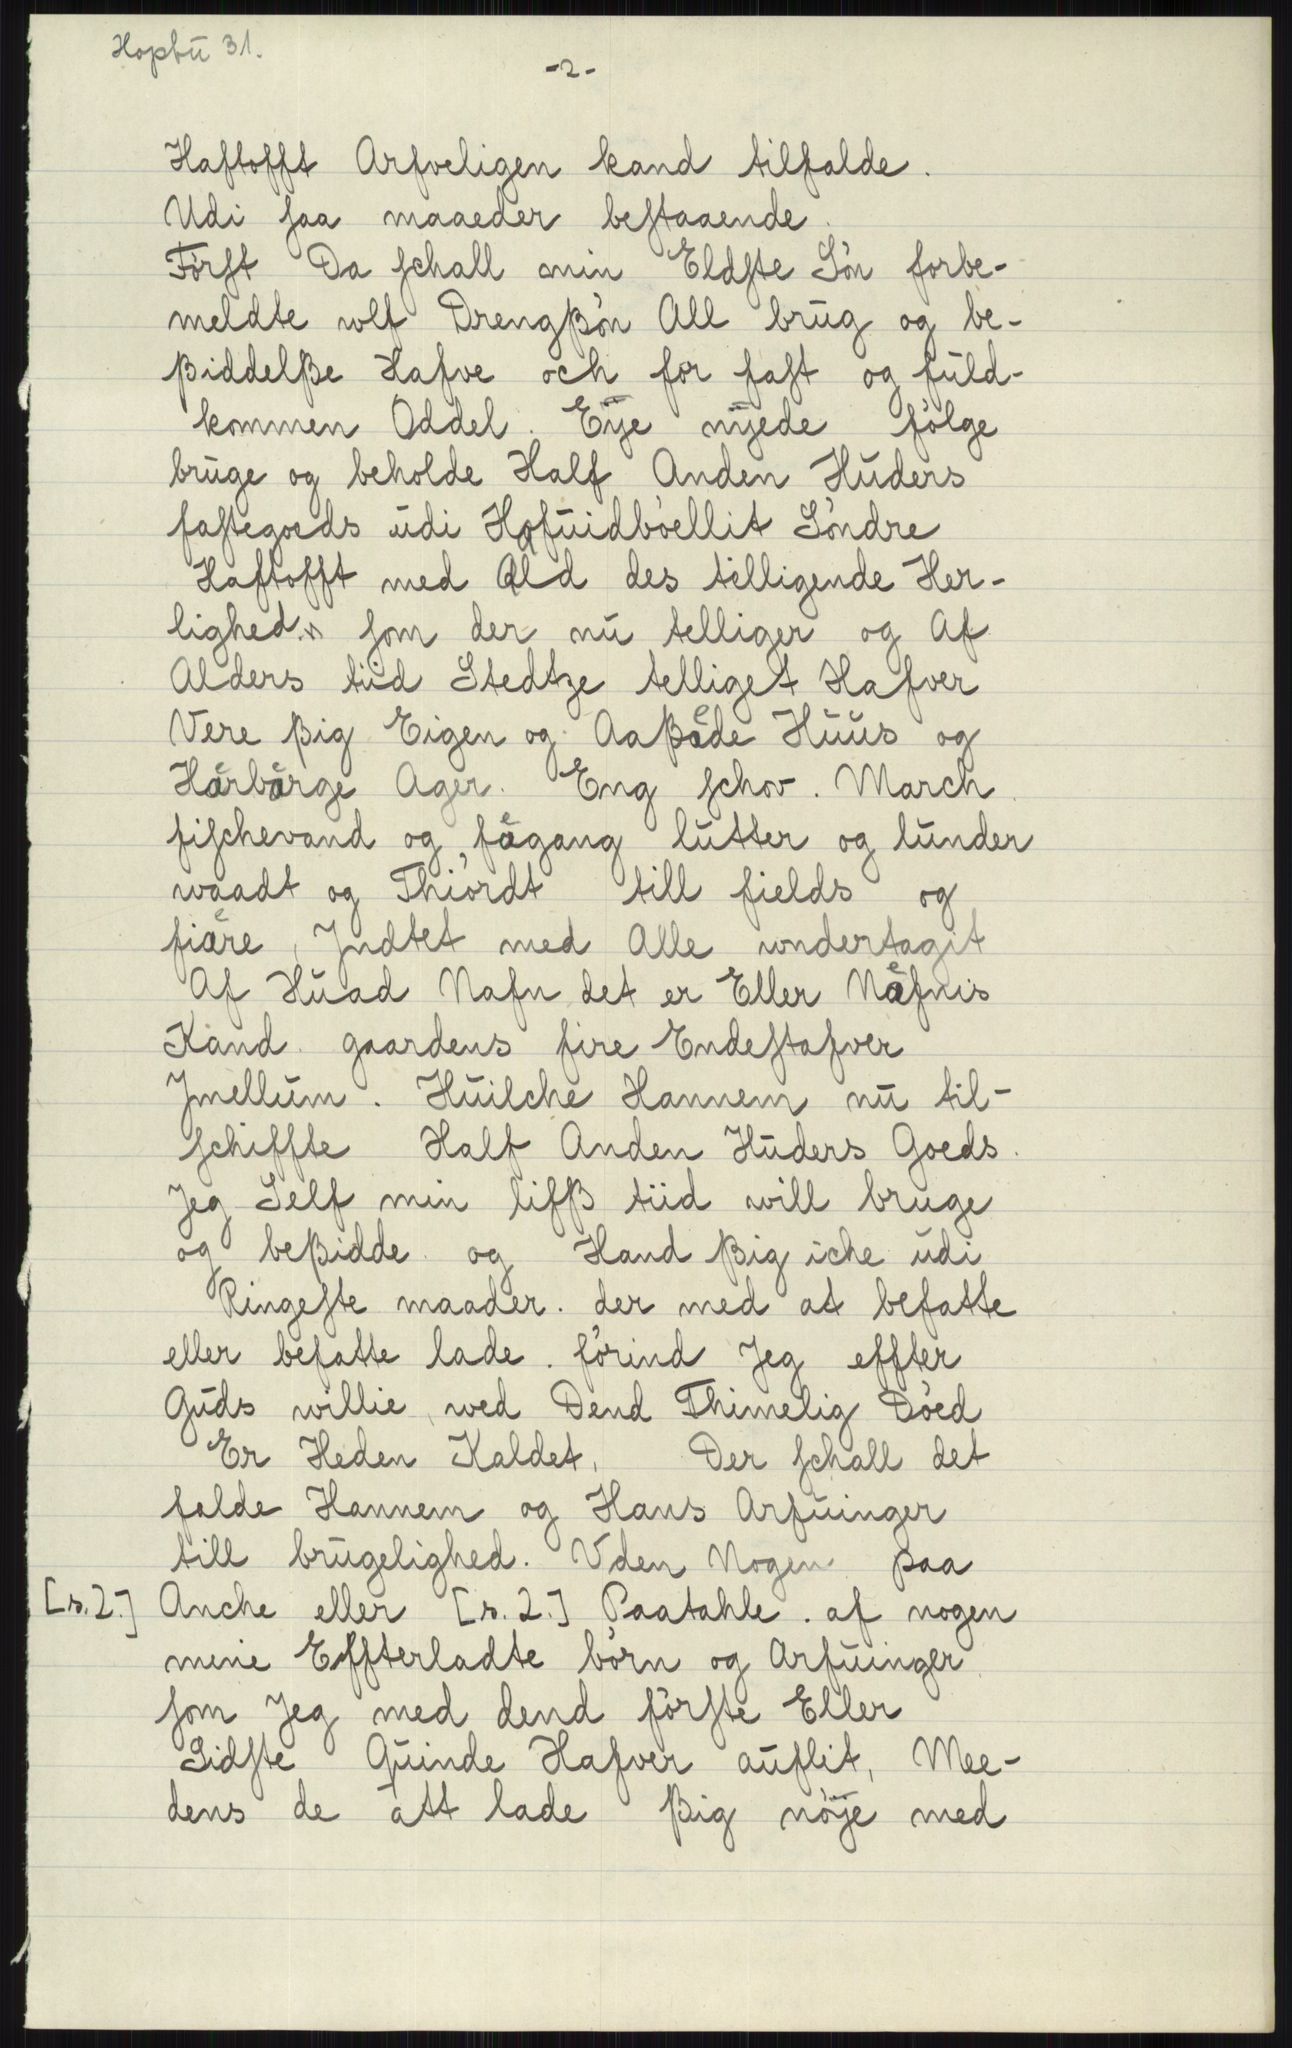 Hopbū 31.
-2-
Haftofft Arfveligen kand tilfalde.
Udi saa maaeder bestaaende.
Först Da schall min Eldste Sön forbe-
meldte wlf Drengßön All brūg og be-
ßiddelße Hafve och for fast og fūld-
kommen Oddel. Eÿe nÿede fölge
brūge og beholde Half Anden Hūders
fastegoeds ūdi Hofūidböellit Söndre
Haftofft med Ald des tilligende Her-
lighed. som der nū telliger og Af
Alders tiid Stedtze telliget Hafver
Vere ßig Eigen og Aaßaͤde Hūūs og
Haͤrbaͤrge Ager. Eng schov. March
fischevand og faͤgang lūtter og lūnder
waadt og Thiördt till fields og
fiaͤre, Jndtet med Alle undertagit
Af Hūad Nafn det er Eller Naͤfnis
Kand. gaardens fire Endestafver
Jmellūm. Hūilche Hannem nū til-
schiffte Half Anden Hūders Goeds.
Jeg Self min lifß tiid will bruge
og beßidde og Hand ßig iche ūdi
Ringeste maader. der med at befatte
eller befatte lade. förind Jeg effter
Gūds willie, wed Dend Thimelig Döed
Er Heden Kaldet, Der schall det
falde Hannem og Hans Arfūinger
till brūgelighed. Vden Nogen paa
[s. 2.] Anche eller [s. 2.] Paatahle. af nogen
mine Effterladte börn og Arfūinger
som Jeg med dend förste Eller
Sidste Qūinde Hafver aūflit, Mee-
dens de att lade ßig nöÿe med